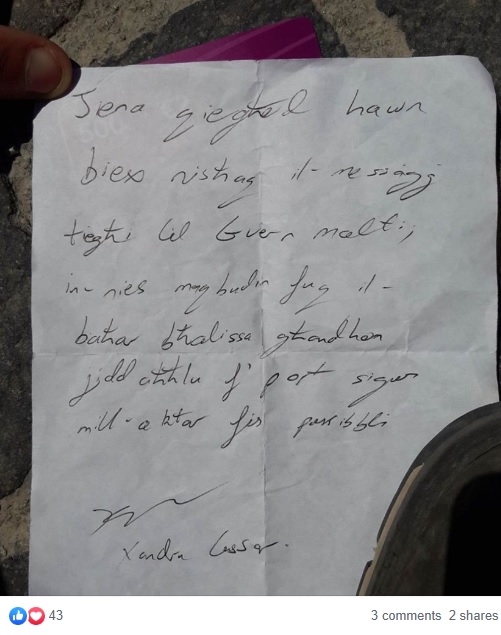 Jiena qieghed hawn
biex nistqag il-messaġġ
tieghi lil Gvern malti;
in-nies maqbudin fuq il-
bahar bhalissa ghandhom
jiddahhlu f' port sigur
mill-aktar fis possibbli
Xandru Cassar.
43
3 comments 2 shares